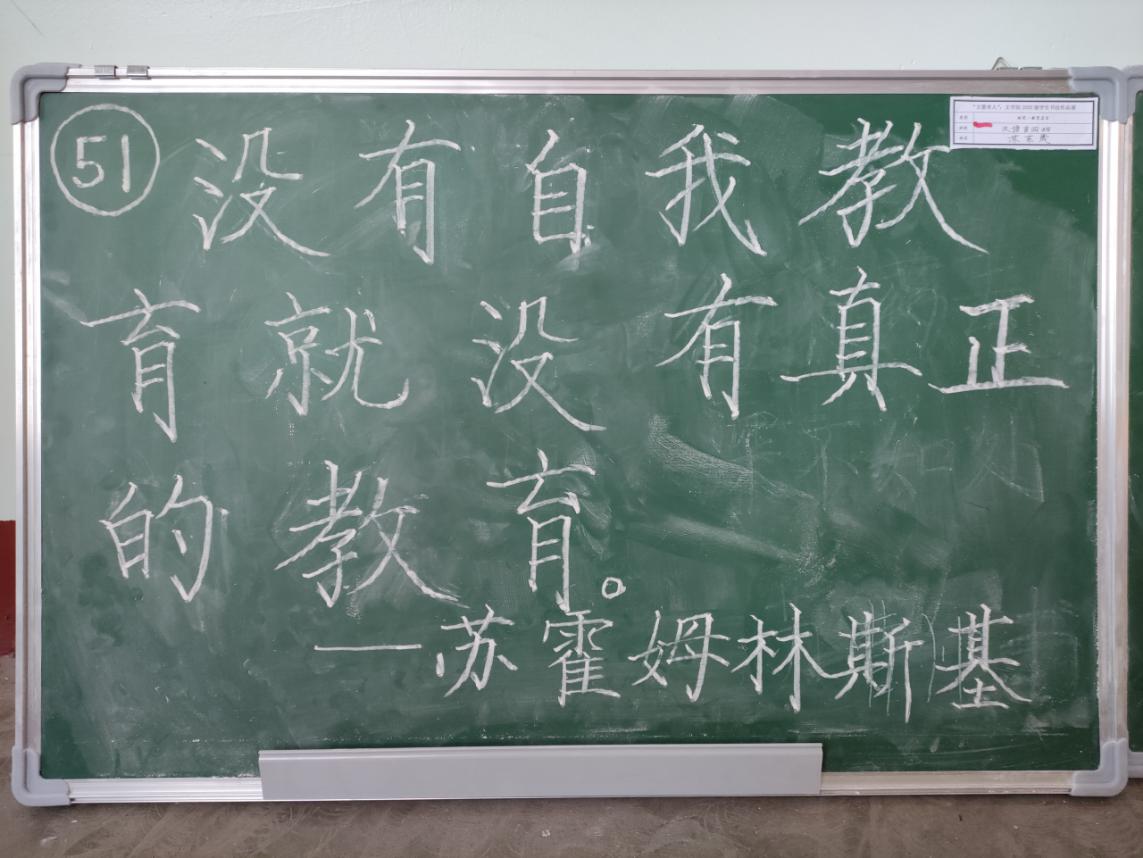 51 没有自我教
育就没有真正
的教育。
—苏霍姆林斯基